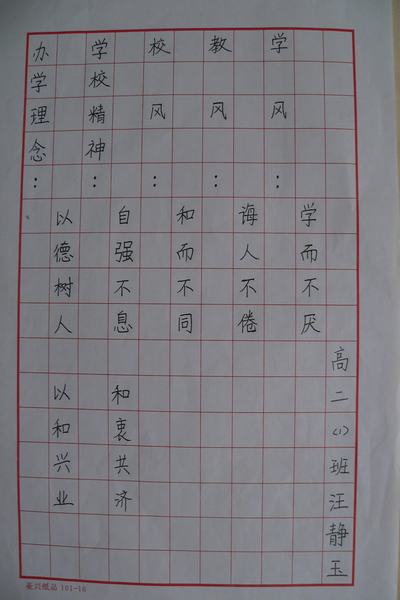 办学理念:
以德树人 以和兴业
学校精神:
自强不息 和衷共济
校风:
和而不同
教风:
诲人不倦
学风:
学而不厌
高二(1)班汪静玉
纸品 101-16